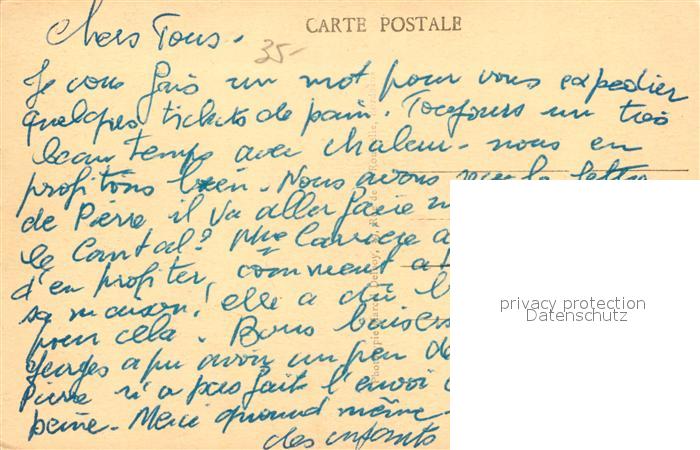 CARTE POSTALE
Chers Tous.
35-
Je vous fais un mot pour vous expedier
quelques tickets de pain. Toujours un très
beau temps avec chaleur - nous en
profitons bien. Nous avons reçu la lettre
de Pierre il va aller faire
le Cantal? Mme Carrière a
d'en profiter, comment a
sa maison! elle a dû
pour cela. Bons baisers
Georges a pu avoir un peu de
Pierre n'a pas fait l'envoi
peine. Merci quand même
des enfants
privacy protection
Datenschutz